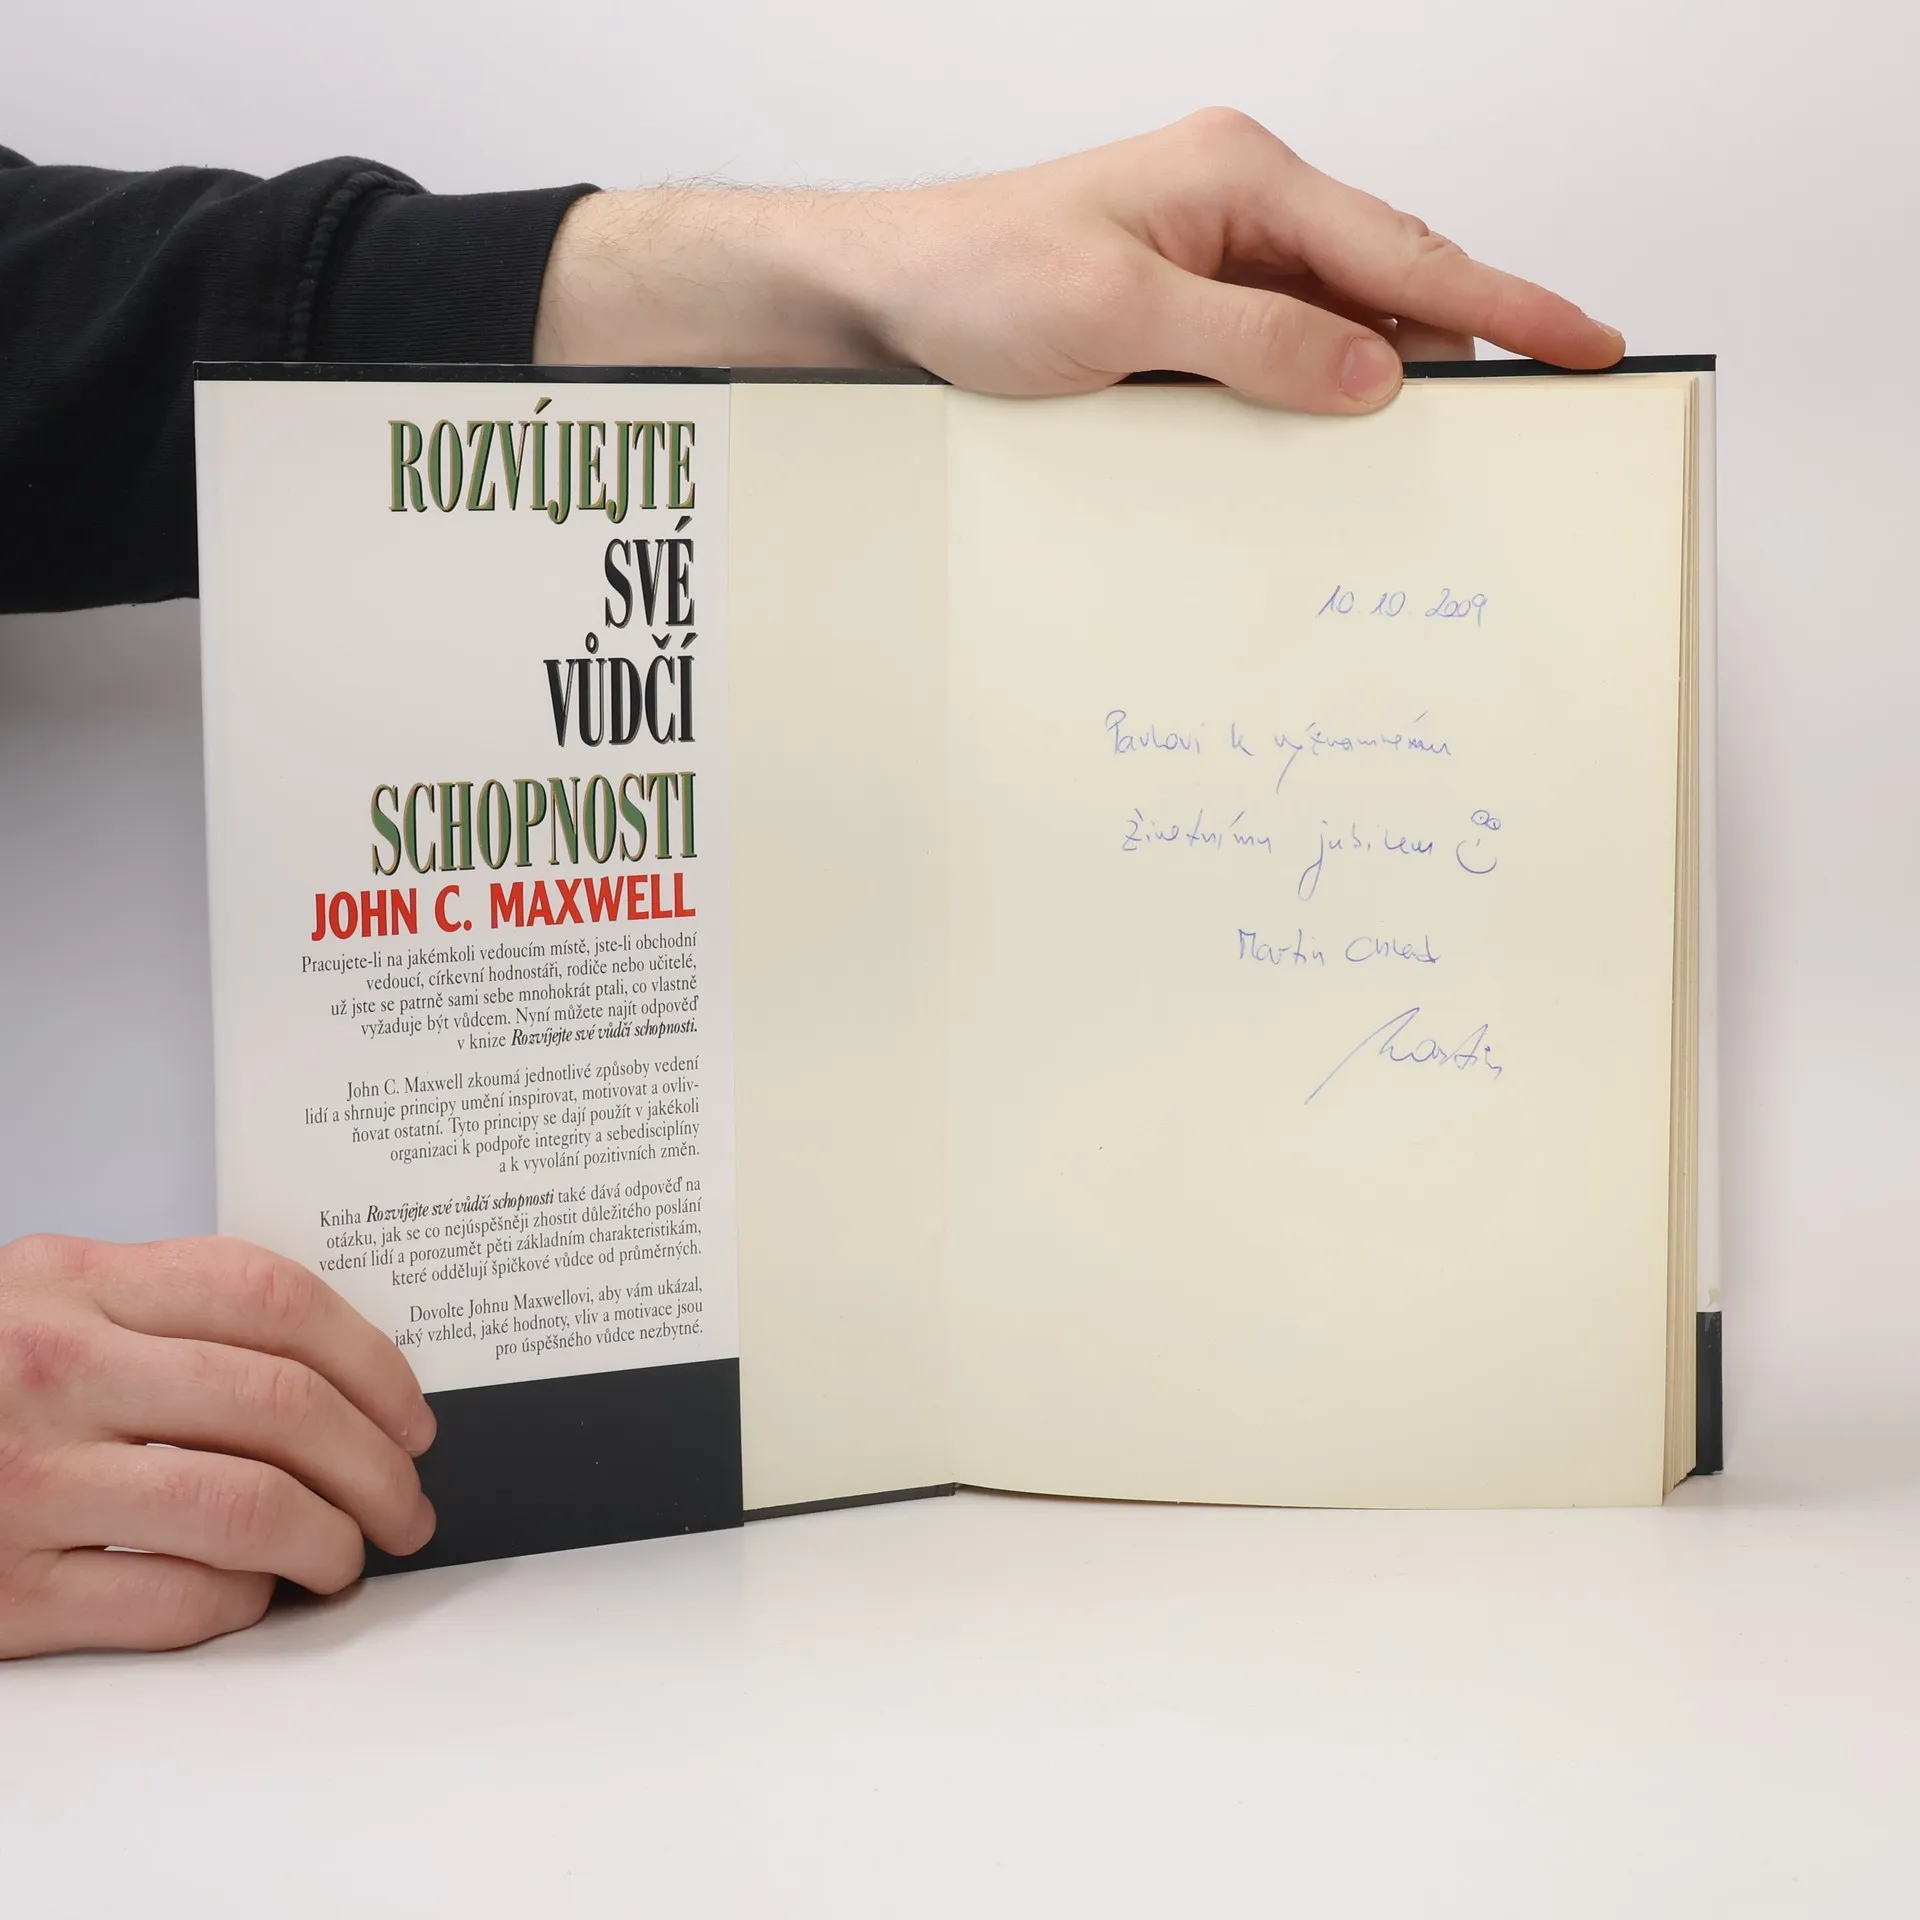 ROZVÍJEJTE
SVÉ
VŮDČÍ
SCHOPNOSTI
JOHN C. MAXWELL
Pracujete-li na jakémkoli vedoucím místě, jste-li obchodní
vedoucí, církevní hodnostáři, rodiče nebo učitelé,
už jste se patrně sami sebe mnohokrát ptali, co vlastně
vyžaduje být vůdcem. Nyní můžete najít odpověď
v knize Rozvíjejte své vůdčí schopnosti.
John C. Maxwell zkoumá jednotlivé způsoby vedení
lidí a shrnuje principy umění inspirovat, motivovat a ovliv-
ňovat ostatní. Tyto principy se dají použít v jakékoli
organizaci k podpoře integrity a sebedisciplíny
a k vyvolání pozitivních změn.
Kniha Rozvíjejte své vůdčí schopnosti také dává odpověď na
otázku, jak se co nejúspěšněji zhostit důležitého poslání
vedení lidí a porozumět pěti základním charakteristikám,
které oddělují špičkové vůdce od průměrných.
Dovolte Johnu Maxwellovi, aby vám ukázal,
jaký vzhled, jaké hodnoty, vliv a motivace jsou
pro úspěšného vůdce nezbytné.
10.10.2009
Pavlovi k významnému
životnímu jubileu
Martin
Martin